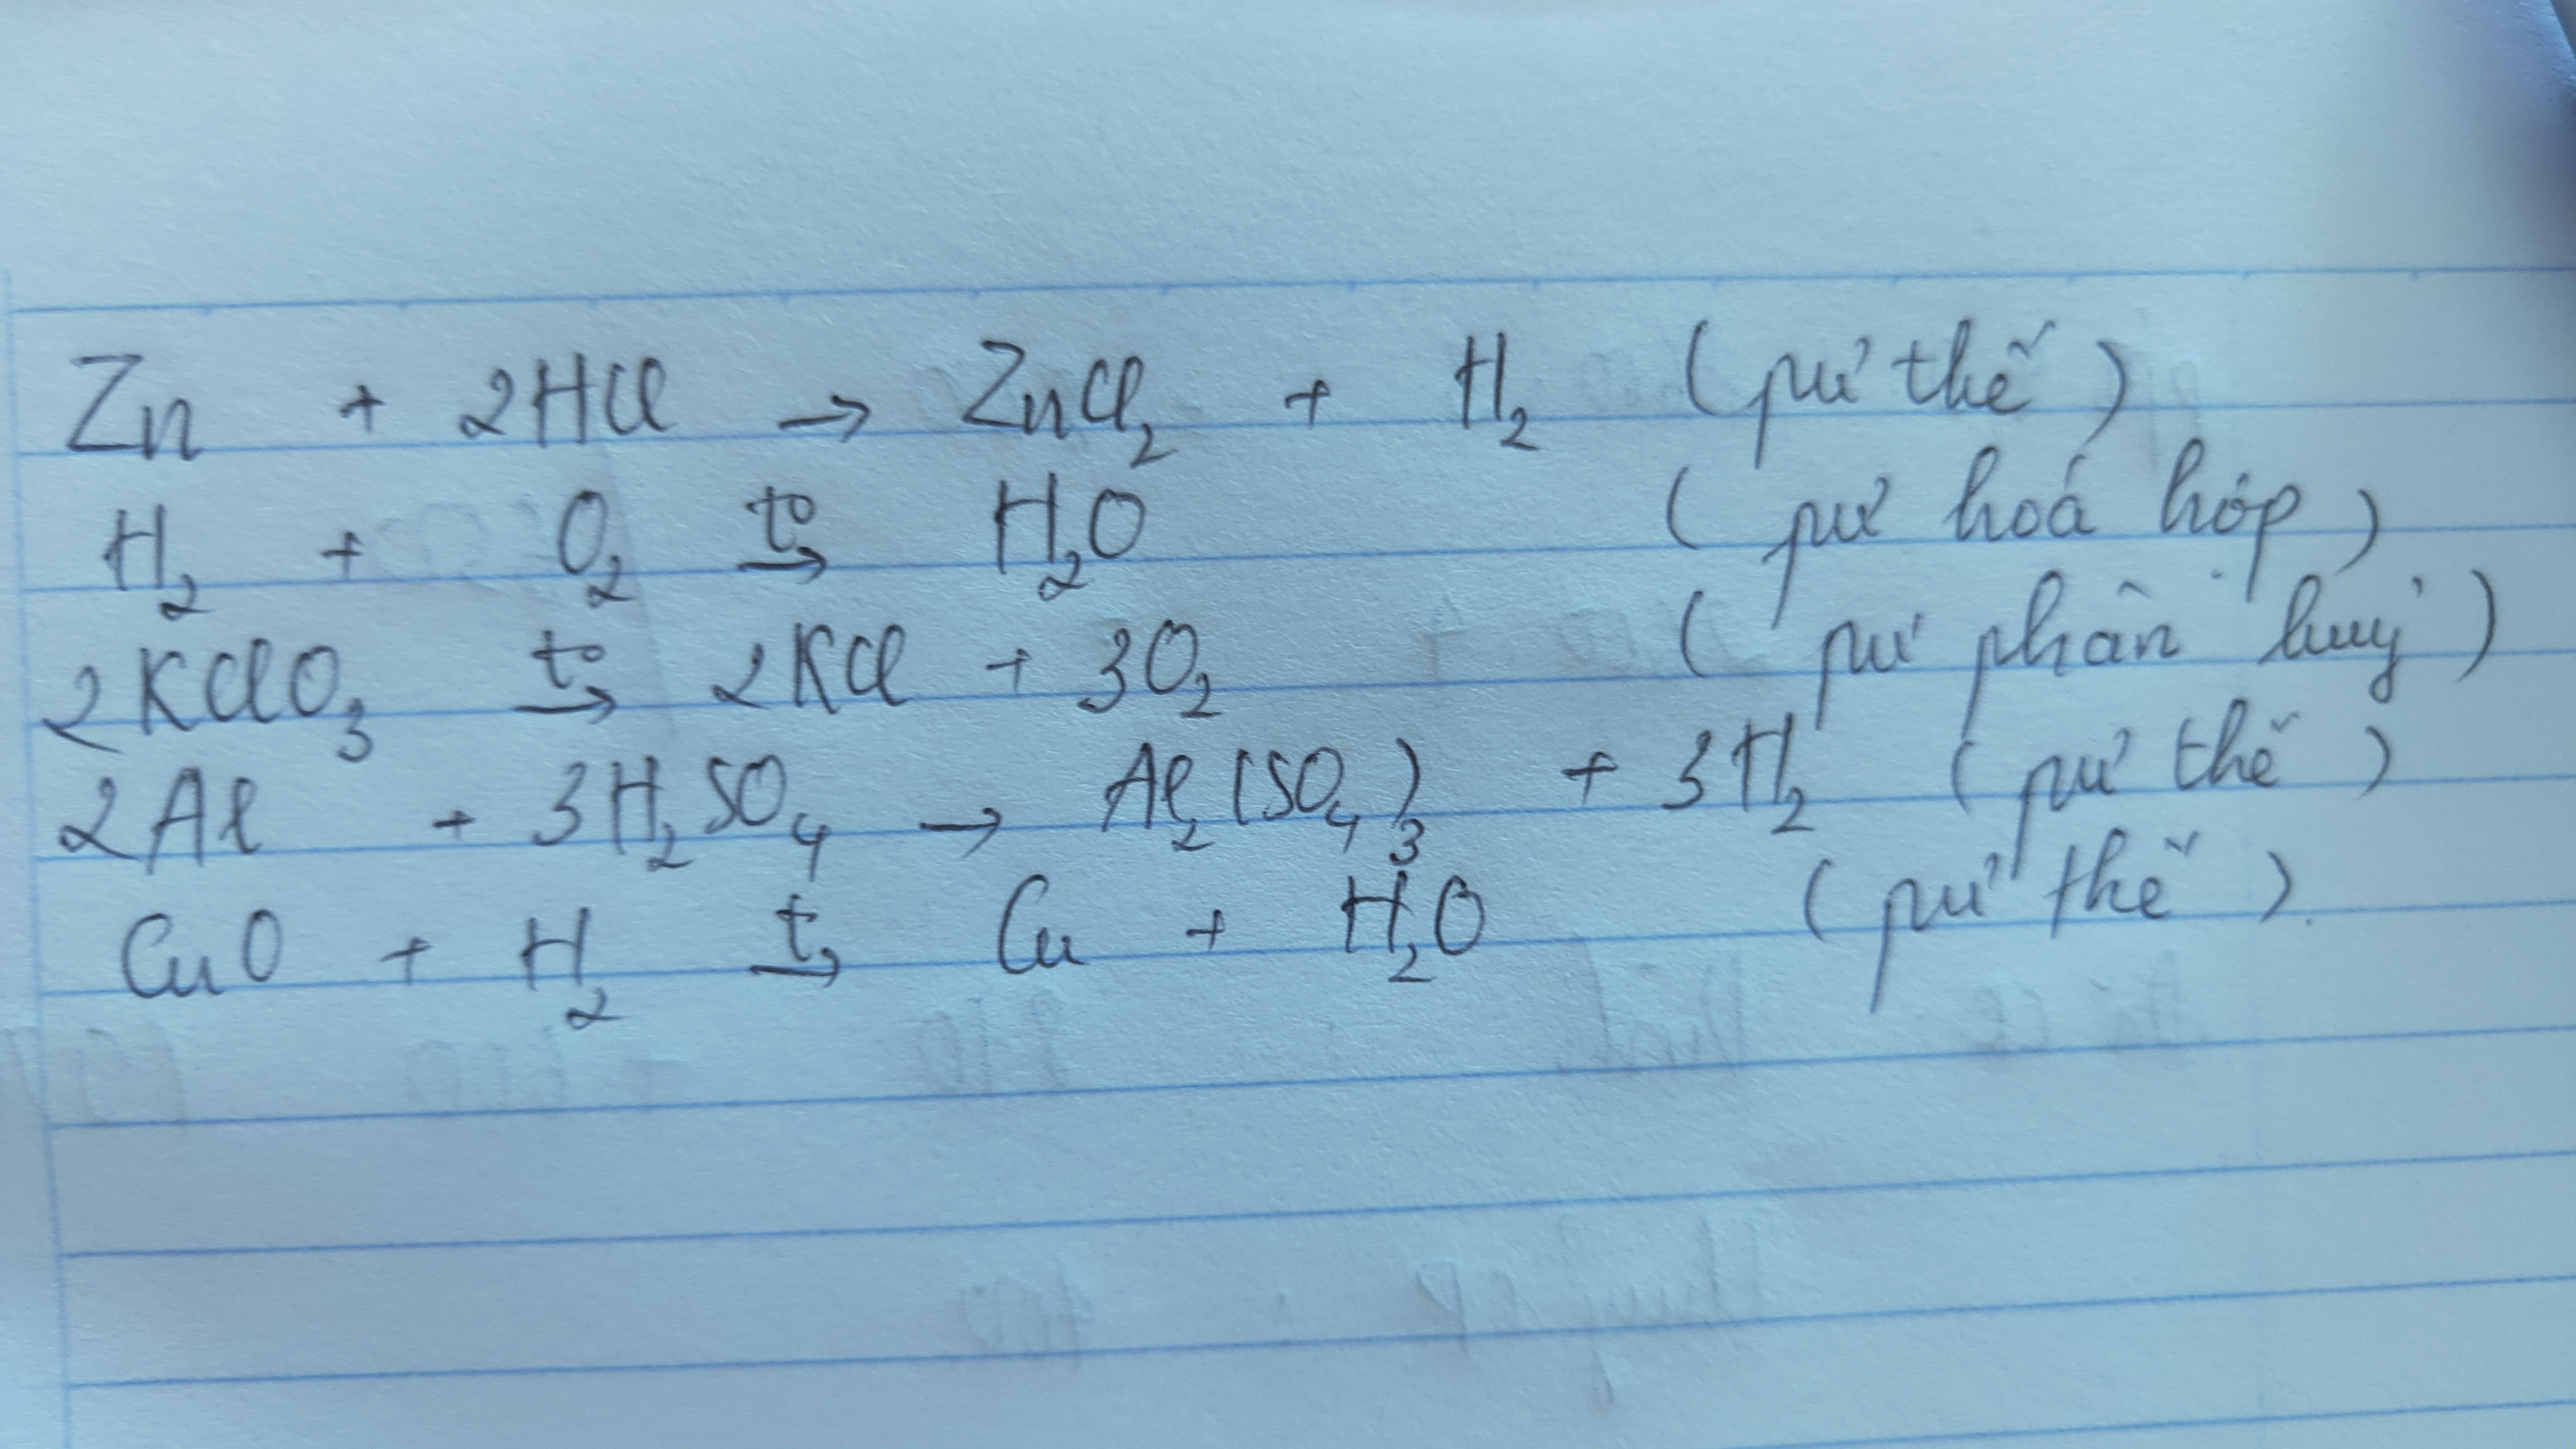 Zn + 2HCl → ZnCl₂ + H₂ (pư thế)
H₂ + O₂ t°→ H₂O (pư hoá hợp)
2KClO₃ t°→ 2KCl + 3O₂ (pư phân huỷ)
2Al + 3H₂SO₄ → Al₂(SO₄)₃ + 3H₂ (pư thế)
CuO + H₂ t°→ Cu + H₂O (pư thế).